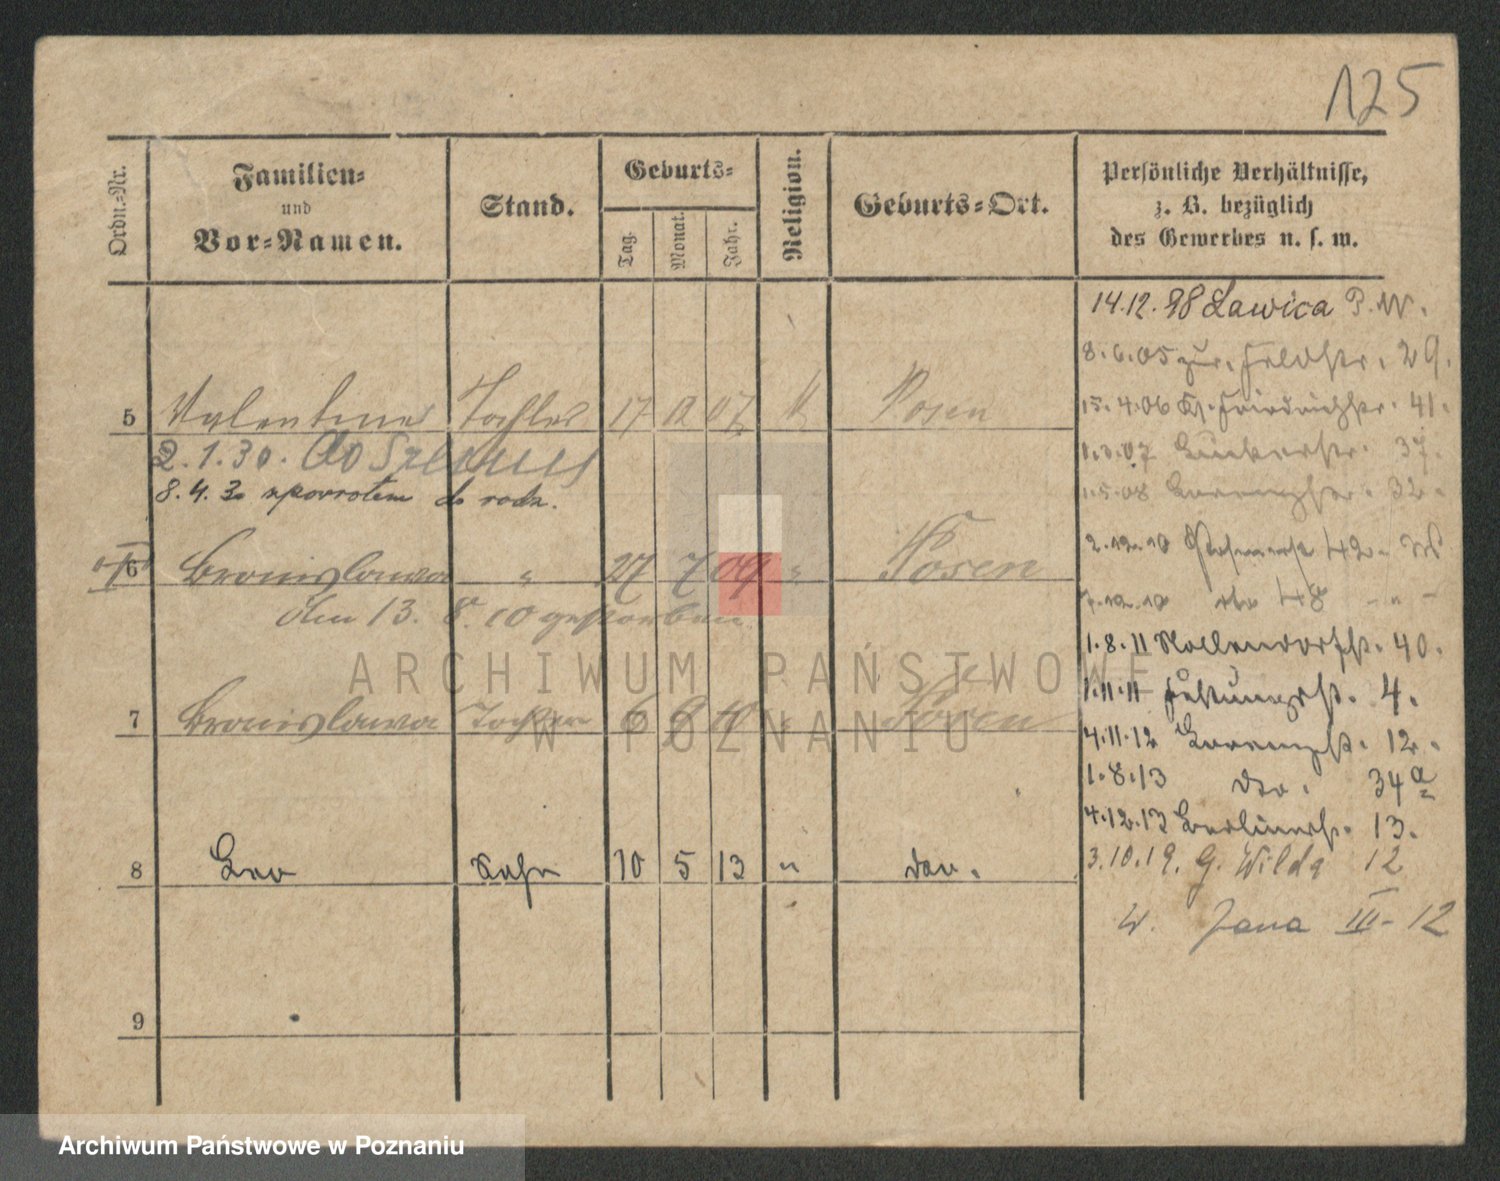 125
Ordn.-Nr.
Familien-
und
Vor-Namen.
Stand.
Geburts-
Tag.
Monat.
Jahr.
Religion.
Geburts-Ort.
Persönliche Verhältnisse,
z. B. bezüglich
des Gewerbes u. s. w.
14.12.98 Lawica P.W.
8.6.05 zur. Feldstr. 29.
15.4.06 Kl. Friedrichstr. 41.
5 Valentine Tochter 17 12 07 K Posen
2.1.30. do
8.4.30 zpowrotem do rodz.
37.
1.5.08 32.
2.12.10 42.
7.12.10 dto 48 - " -
6 Bronislawa " 27 7 09 " Posen
den 13. 8. 10 gestorben
1.8.11 Nollendorfst. 40.
1.11.11 Festungsst. 4.
7 Bronislawa Tochter 6 8 10 " Posen
4.11.12 12.
1.8.13 dto. 34a
4.12.13 Berlinerst. 13.
8 Leo Sohn 10 5 13 " dto.
3.10.19. G. Wilda 12
W. Jana III - 12
9
ARCHIWUM PAŃSTWOWE
W POZNANIU
Archiwum Państwowe w Poznaniu